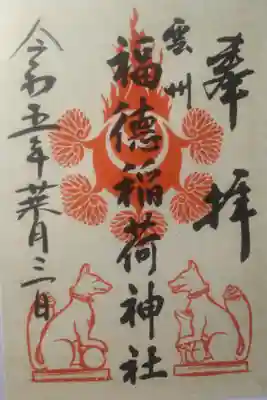 奉拝
雲州
福徳稲荷神社
令和五年葉月三日